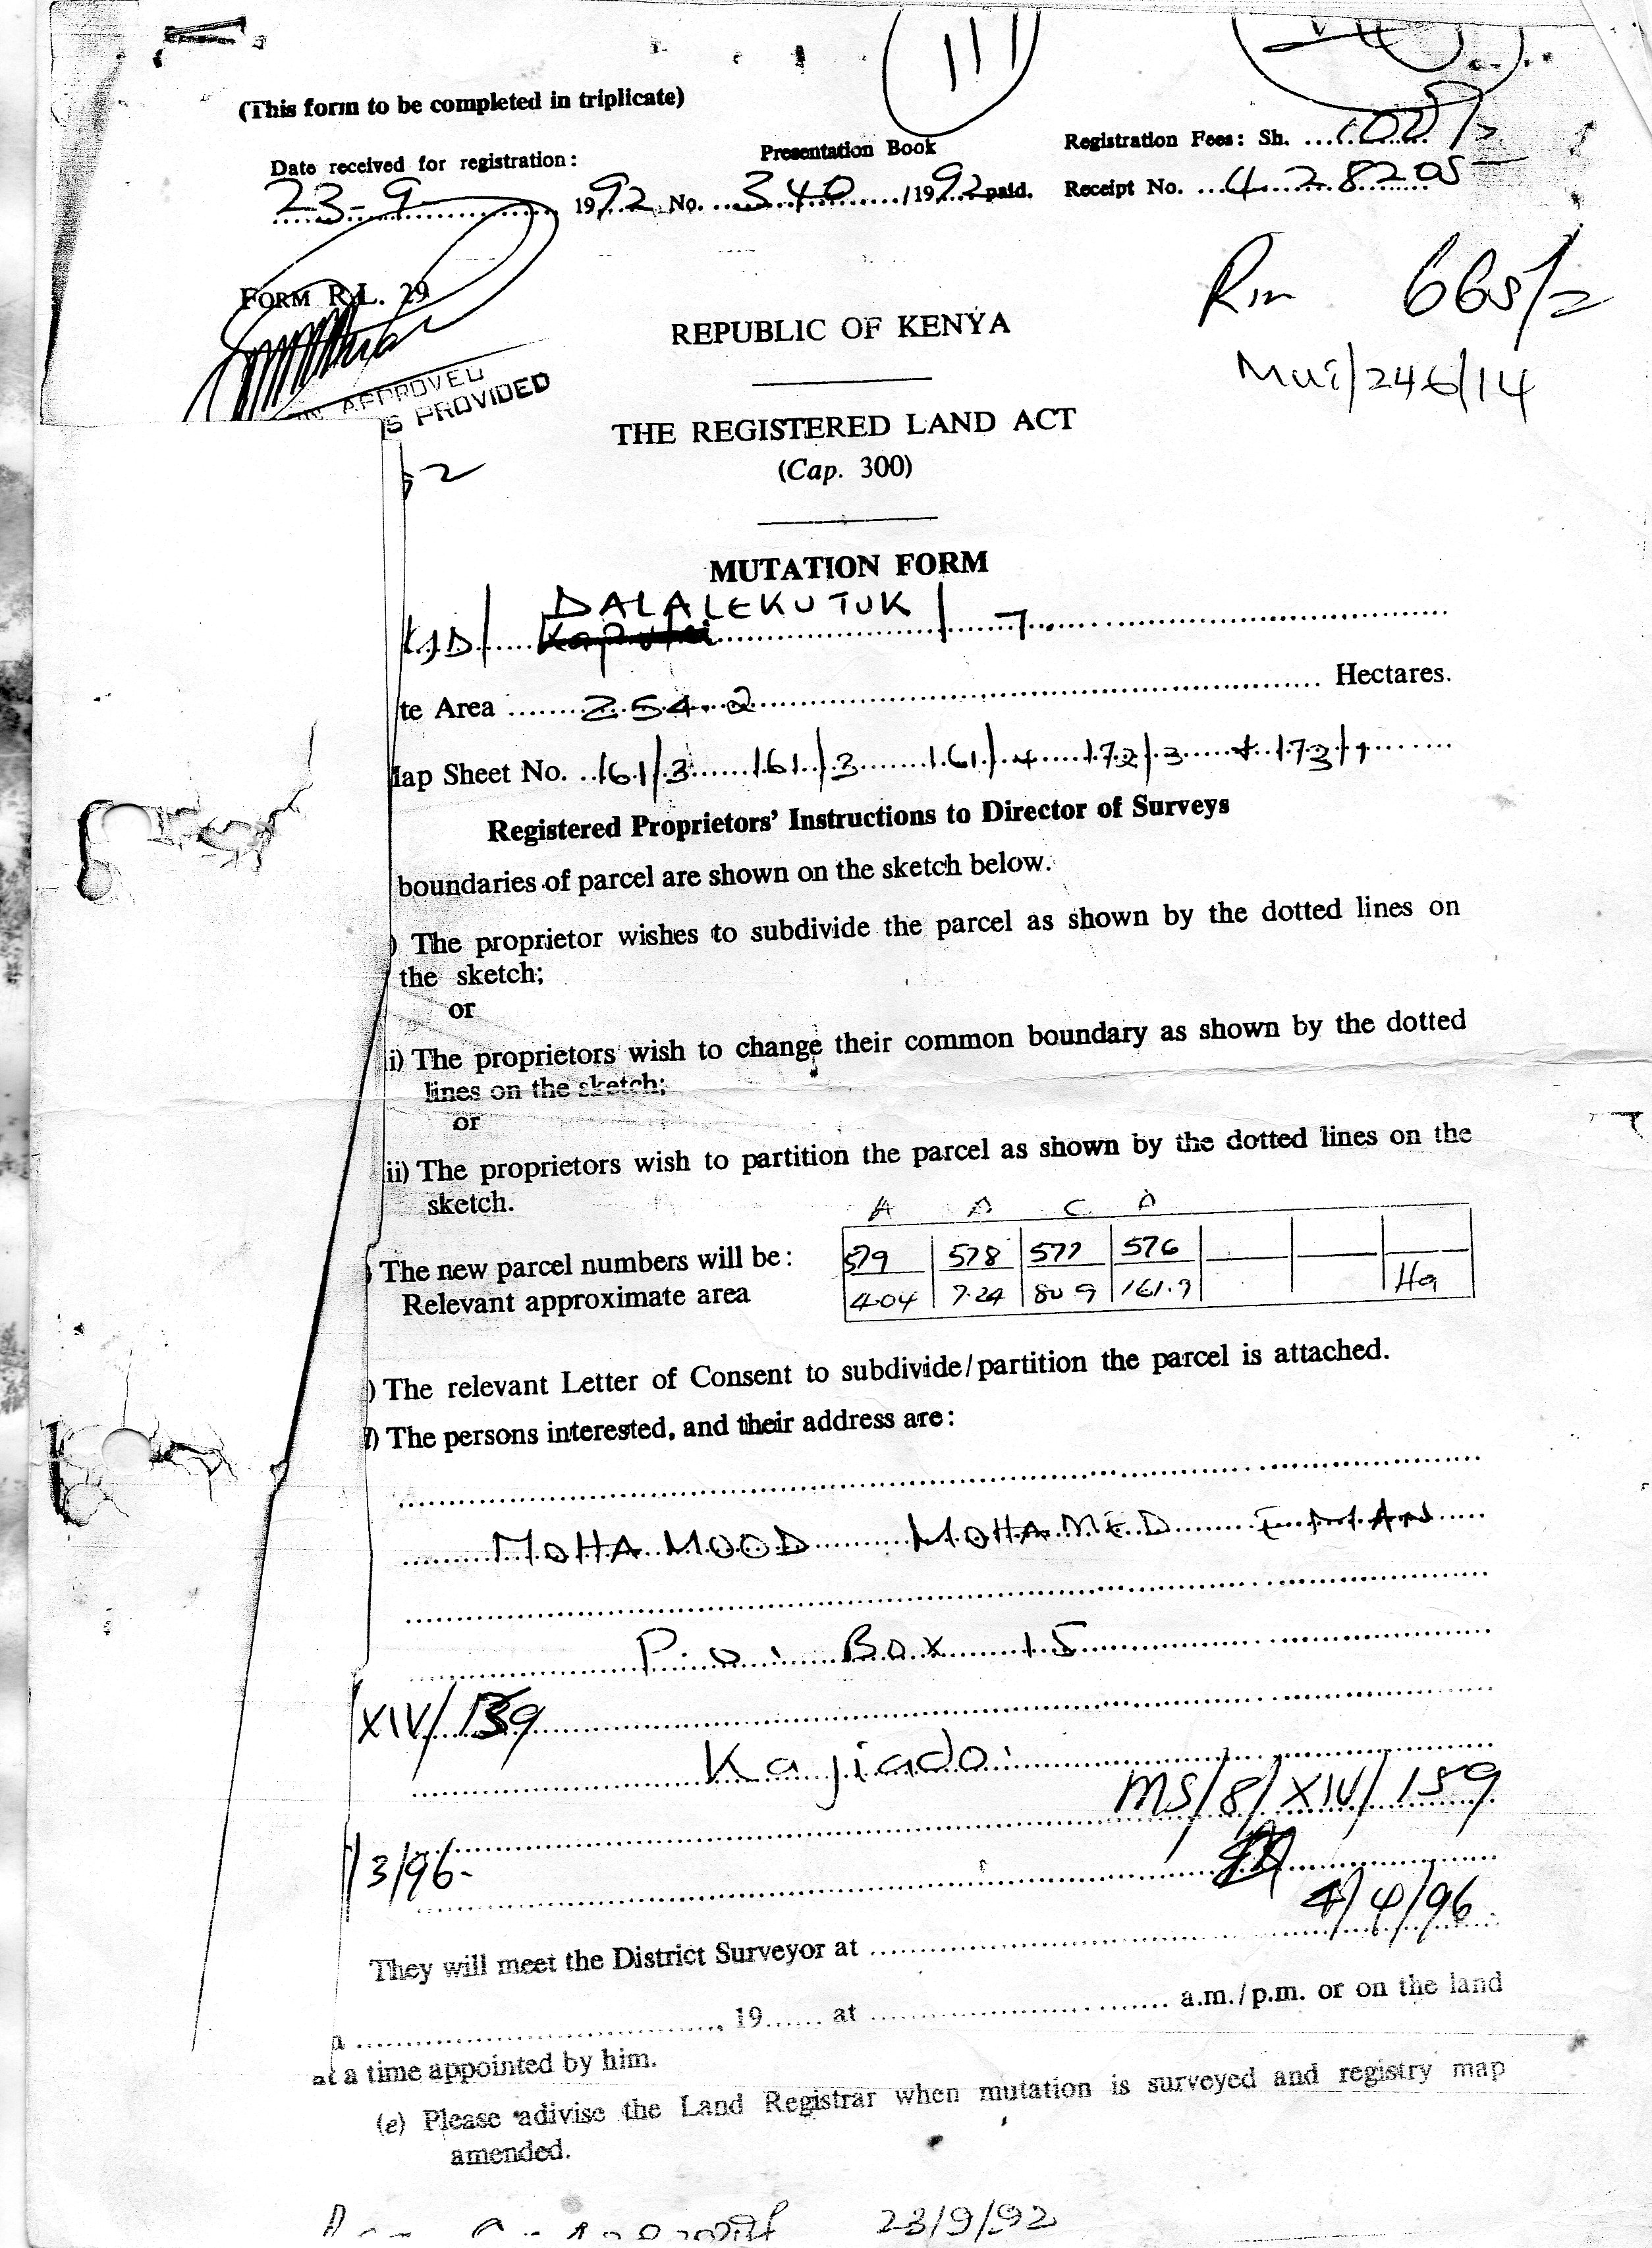 111
(This form to be completed in triplicate)
Date received for registration:
Presentation Book
Registration Fees: Sh. ...100/=
23-9 1992 No. 340 /1992 paid. Receipt No. 428205
Rm 665/=
FORM R.L. 29
REPUBLIC OF KENYA
Mui/246/14
APPROVED
S PROVIDED
THE REGISTERED LAND ACT
(Cap. 300)
MUTATION FORM
DALALEKUTUK
KJD/ Kaputei / 7
te Area 254.2 Hectares.
Map Sheet No. 161/3 161/3 161/4 172/3 + 173/1
Registered Proprietors' Instructions to Director of Surveys
boundaries of parcel are shown on the sketch below.
) The proprietor wishes to subdivide the parcel as shown by the dotted lines on
the sketch;
or
i) The proprietors wish to change their common boundary as shown by the dotted
lines on the sketch;
or
ii) The proprietors wish to partition the parcel as shown by the dotted lines on the
sketch.
A C D
The new parcel numbers will be: 579 578 577 576
Relevant approximate area 4.04 7.24 80 9 161.9 Ha
) The relevant Letter of Consent to subdivide/partition the parcel is attached.
) The persons interested, and their address are:
MOHAMOOD MOHAMED
P.O. Box 15
XIV/159
Kajiado
MS/8/XIV/159
/3/96-
4/4/96
They will meet the District Surveyor at
, 19...... at a.m./p.m. or on the land
at a time appointed by him.
(e) Please adivise the Land Registrar when mutation is surveyed and registry map
amended.
23/9/92